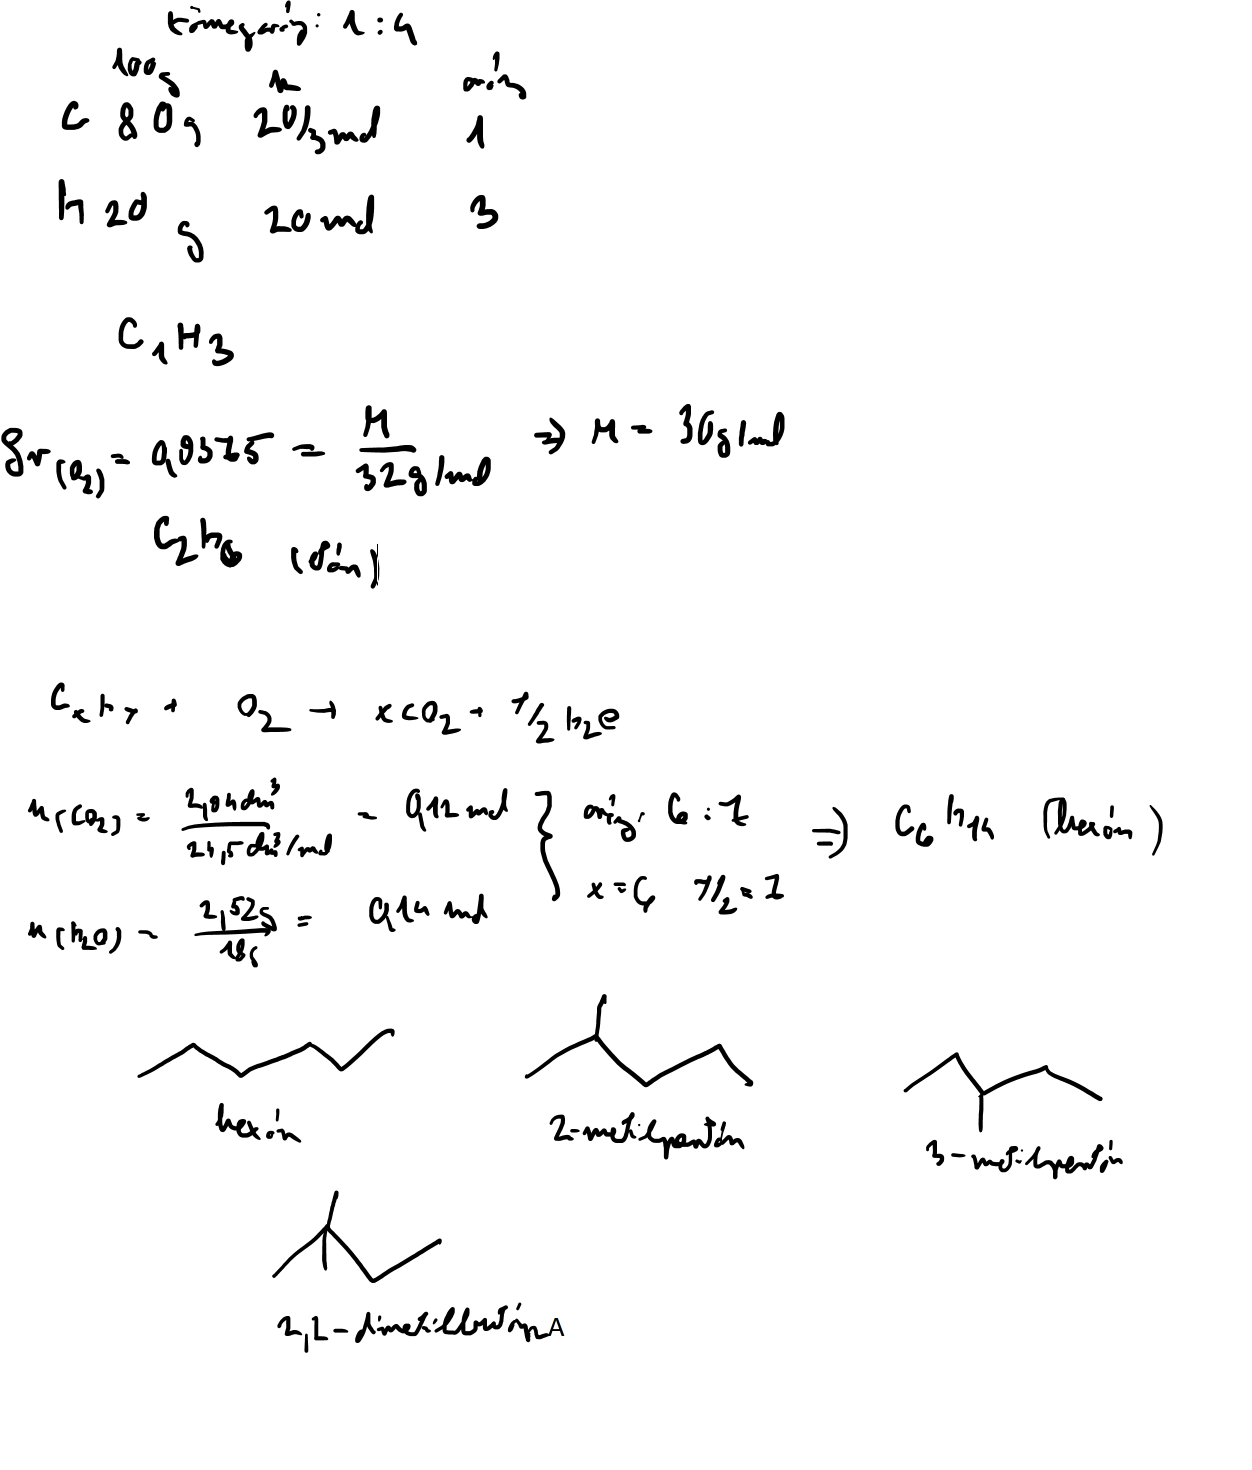 tömegarány: 1 : 4
100g n arány
C 80g 20/3 mol 1
h 20 g 20 mol 3
C₁H₃
ρr(O₂) = 0,9375 = M / 32g/mol ⇒ M = 30g/mol
C₂h₆ (etán)
Cₓhᵧ + O₂ → xCO₂ + y/2 h₂O
n(CO₂) = 2,94dm³ / 24,5dm³/mol = 0,12 mol } arány: 6 : 7 ⇒ C₆h₁₄ (hexán)
x = 6 y/2 = 7
n(h₂O) = 2,52g / 18g = 0,14 mol
hexán 2-metilpentán 3-metilpentán
2,2-dimetilbután A